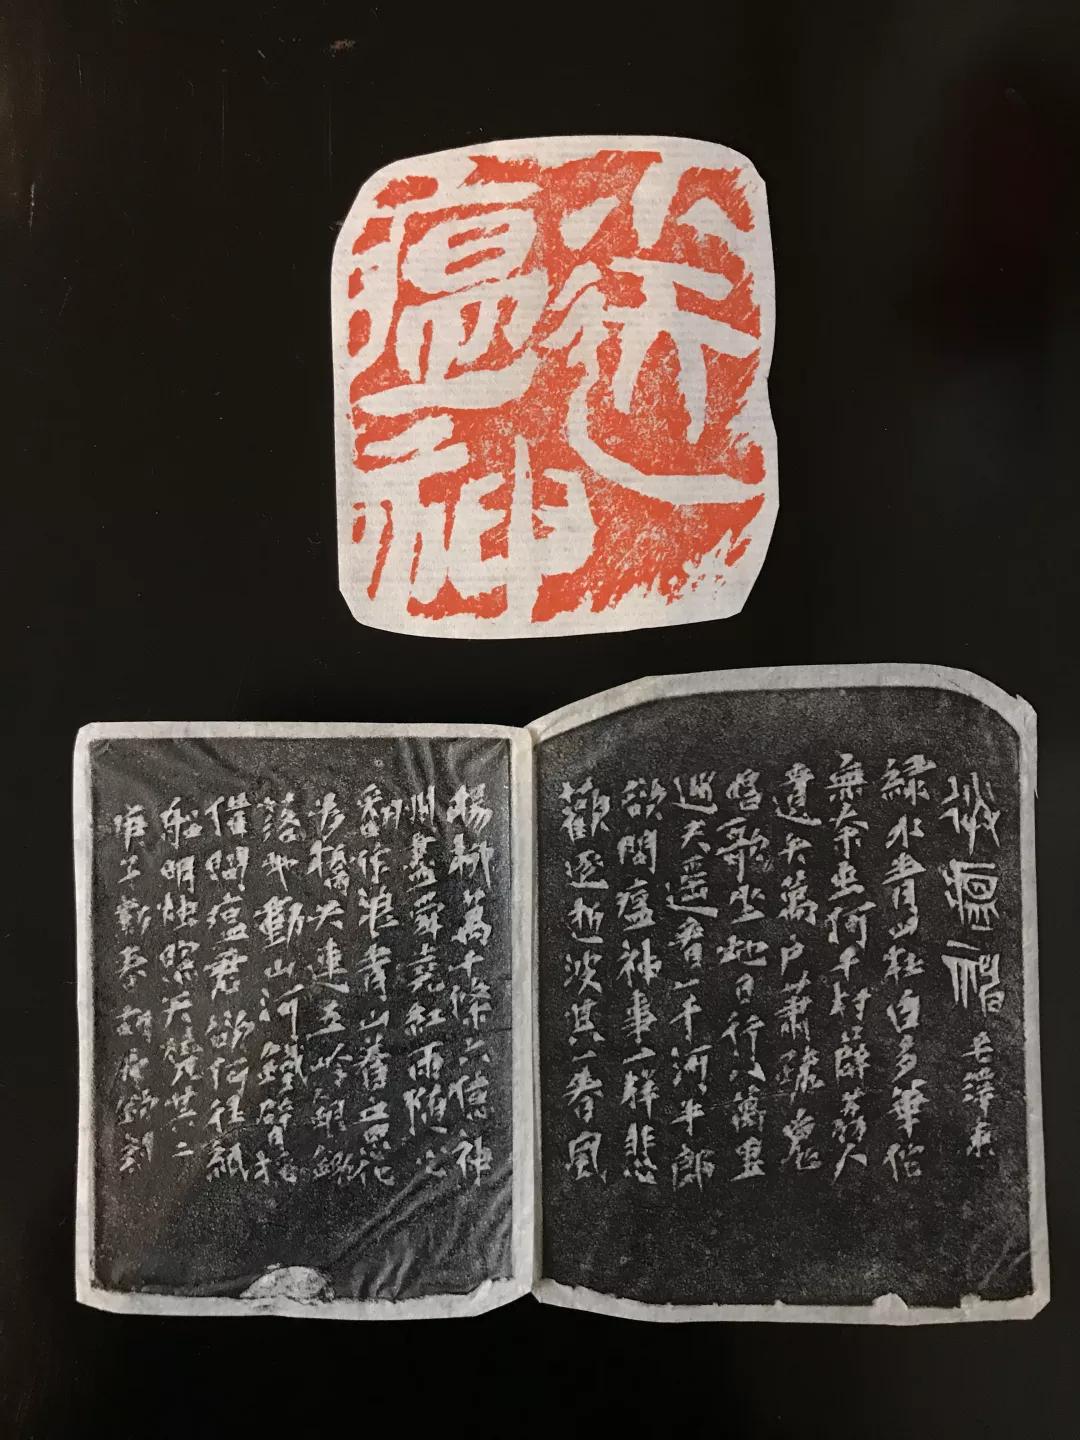 送
瘟神
送瘟神 毛澤東
綠水青山枉自多華佗
無奈虫何千村薜荔人
遺矢萬戶蕭疏鬼
唱歌坐地日行八萬里
巡天遙看一千河牛郎
欲問瘟神事一樣悲
歡逐逝波其一春風
楊柳萬千條六億神
州盡舜堯紅雨隨心
翻作浪青山著意化
為橋天連五嶺銀鋤
落地動山河鐵臂搖
借問瘟君欲何往紙
船明燭照天燒其二
庚子新春